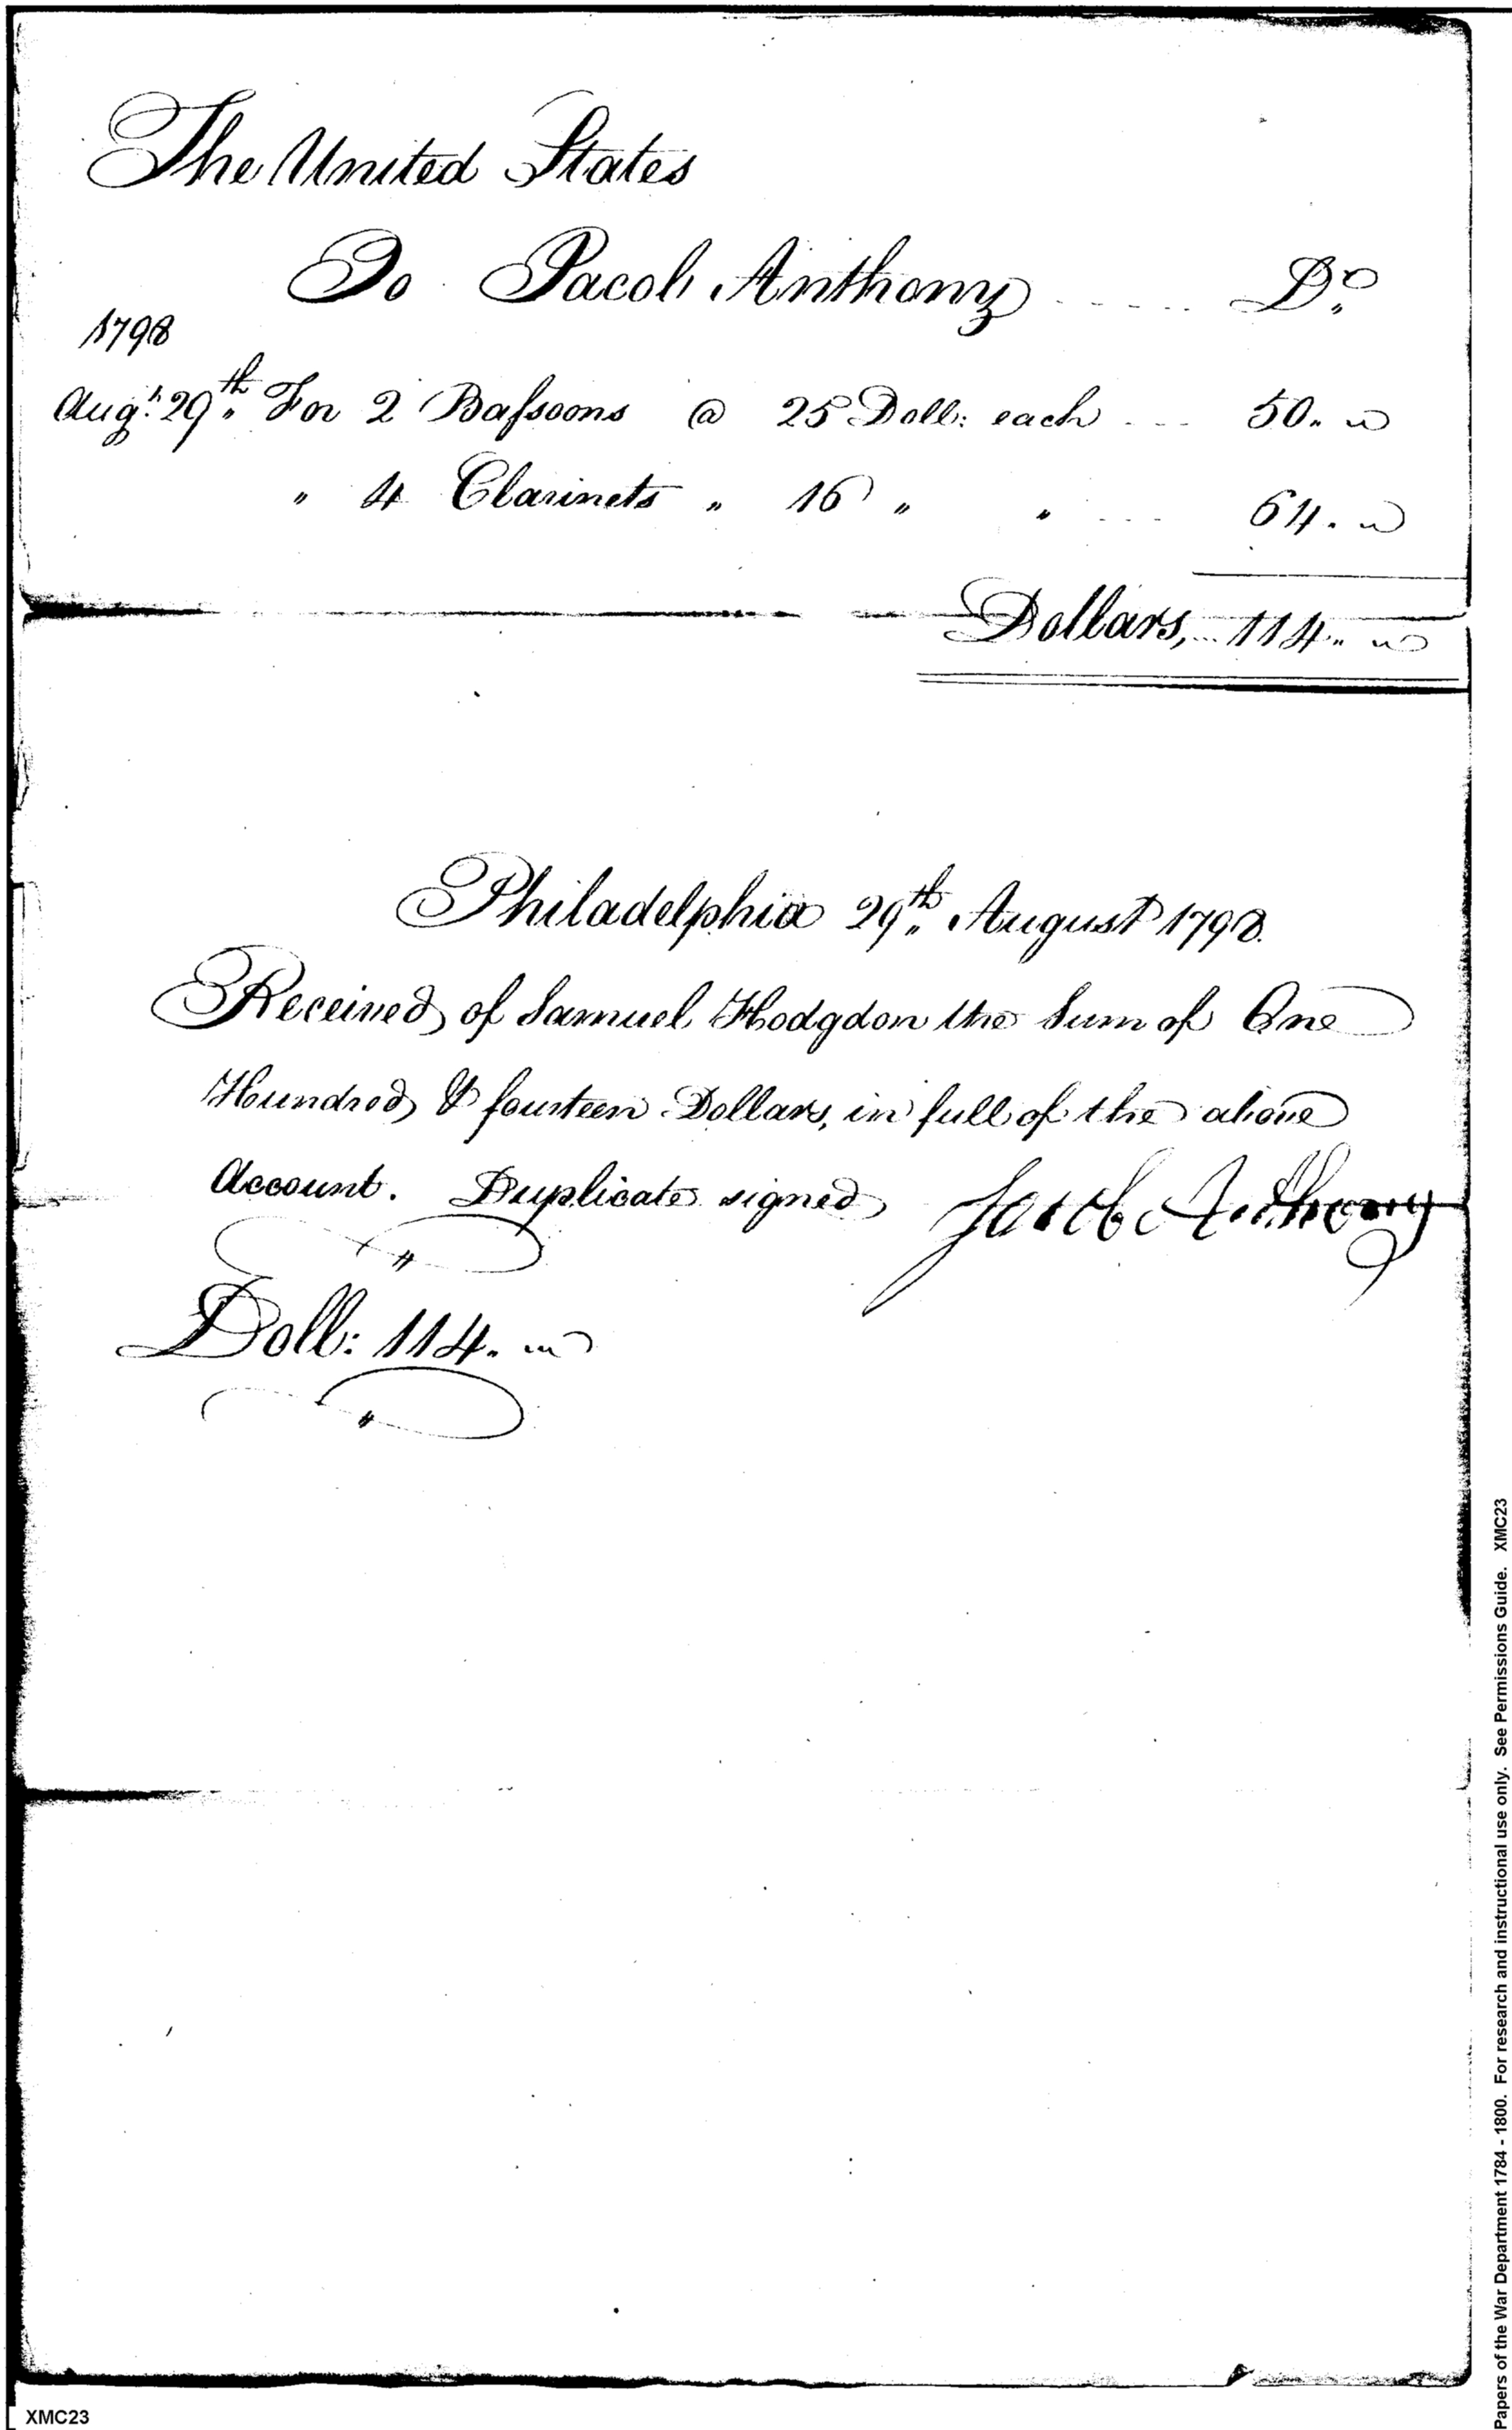 The United States
To Jacob Anthony ..... Dr
1798
Augt. 29th. For 2 Bassoons @ 25 Doll: each ... 50. "
" 4 Clarinets " 16 " " ... 64. "
Dollars, ... 114. "
Philadelphia 29th. August 1798.
Received of Samuel Hodgdon the Sum of One
Hundred & fourteen Dollars, in full of the above
Account. Duplicate signed Jacob Anthony
Doll: 114. "
Papers of the War Department 1784 - 1800. For research and instructional use only. See Permissions Guide. XMC23
XMC23